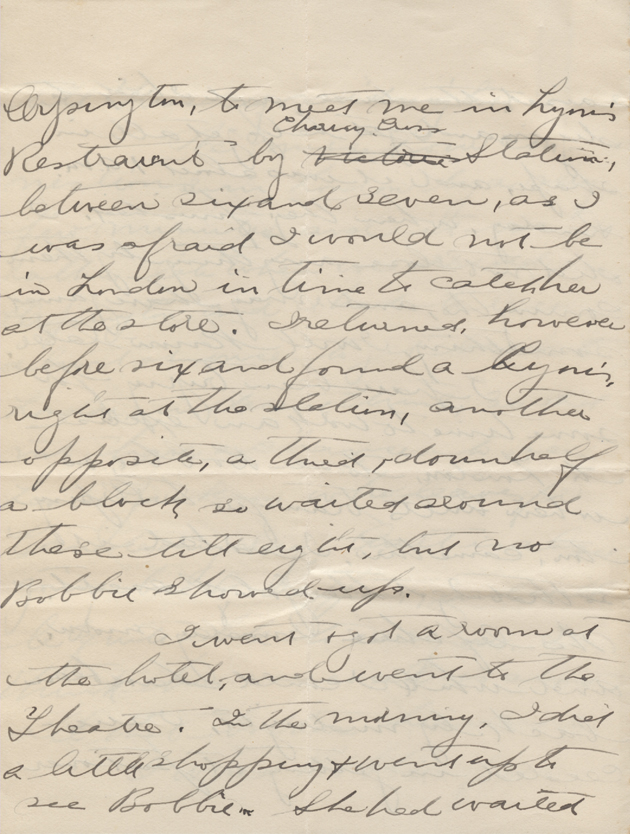 Orpington, to meet me in Lyon's
Charing Cross
Restraurnt by Victoria Station,
between six and seven, as I
was afraid I would not be
in London in time to catch her
at the store. I returned, however
before six and found a Lyon's,
right at the station, another
opposite, a third, down half
a block, so waited around
these till eight, but no
Bobbie showed up.
I went & got a room at
the hotel, and went to the
Theatre. In the morning, I did
a little shopping & went up to
see Bobbie. She had waited